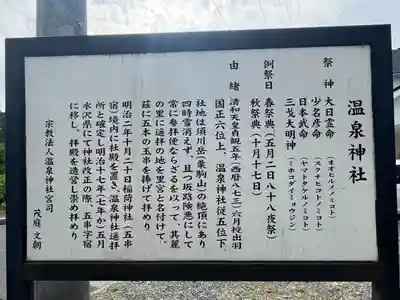 温泉神社
祭神 大日霊命(オオヒルメノミコト)
少名彦命(スクナヒコナノミコト)
日本武命(ヤマトタケルノミコト)
三戈大明神(ミホコダイミョウジン)
例祭日 春祭典(五月二日八十八夜祭)
秋祭典(十月十七日)
由緒 清和天皇貞観五年(西暦八七三)六月授出羽
国正六位上、温泉神社従五位下、
社地は須川岳(栗駒山)の絶頂にあり
四時雪消えず、且つ坂路険悪にして
常に参拝便ならざるを以って、其麓
の里に遥拝の地を里宮と名付けて、
茲に五本の玉串を捧げて拝めり
明治二年十月二十日稲荷神社(五串
宿)境内に社殿を置き、温泉神社遥拝
所と確定し明治十七年(七年か)五月
水沢県にて神社改正の際、五串字宿
に移し、拝殿を造営し崇め拝めり
宗教法人温泉神社宮司
茂庭文朝